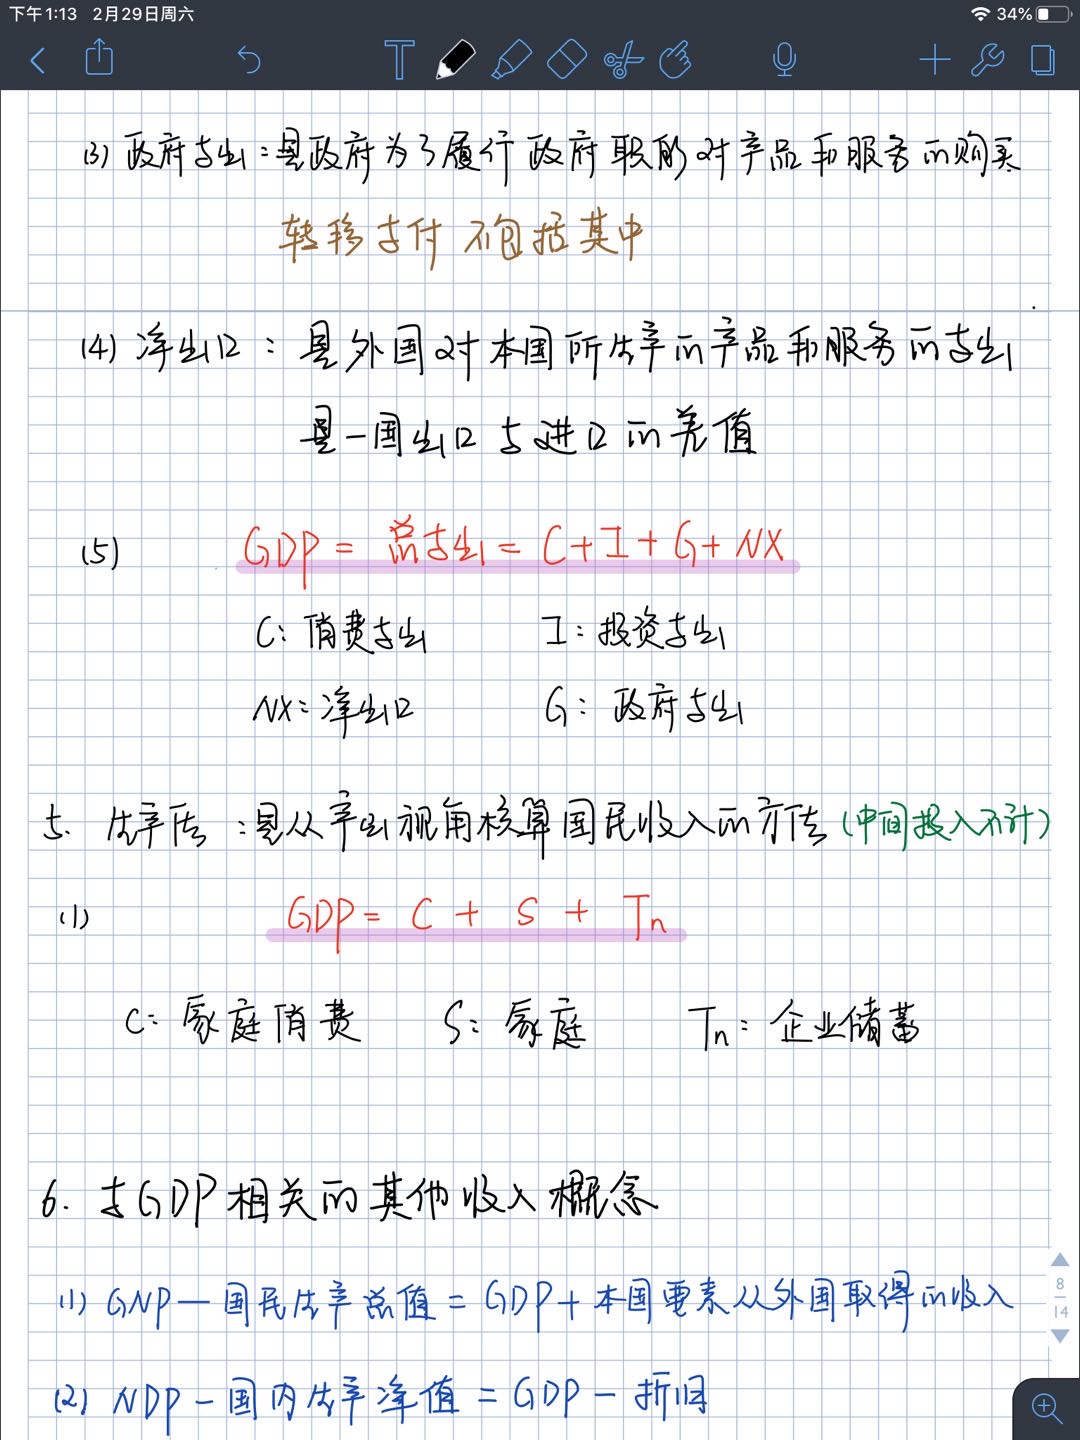 下午1:13 2月29日周六 34%
(3) 政府支出：是政府为了履行政府职能对产品和服务的购买
转移支付不包括其中
(4) 净出口：是外国对本国所生产的产品和服务的支出
是一国出口与进口的差值
(5) GDP = 总支出 = C + I + G + NX
C：消费支出 I：投资支出
NX：净出口 G：政府支出
5. 生产法：是从产出视角核算国民收入的方法（中间投入不计）
(1) GDP = C + S + Tn
C：家庭消费 S：家庭 Tn：企业储蓄
6. 与GDP相关的其他收入概念
(1) GNP — 国民生产总值 = GDP + 本国要素从外国取得的收入
8
14
(2) NDP — 国内生产净值 = GDP — 折旧